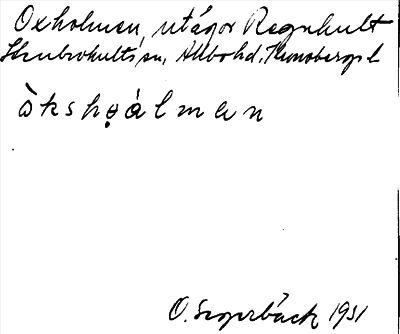 Oxholmen, utägor Regnhult
Skubrohults sn, Allbo hd, Kronobergs l
òkshọálmen
O. Segerbäck 1931